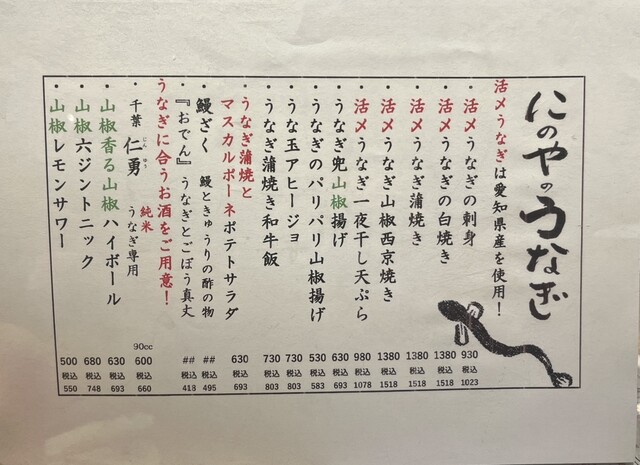 にのやのうなぎ
活〆うなぎは愛知県産を使用！
・活〆うなぎの刺身 930 税込 1023
・活〆うなぎの白焼き 1380 税込 1518
・活〆うなぎ蒲焼き 1380 税込 1518
・活〆うなぎ山椒西京焼き 1380 税込 1518
・活〆うなぎ一夜干し天ぷら 980 税込 1078
・うなぎ兜山椒揚げ 630 税込 693
・うなぎのパリパリ山椒揚げ 530 税込 583
・うな玉アヒージョ 730 税込 803
・うなぎ蒲焼き和牛飯 730 税込 803
・うなぎ蒲焼と
マスカルポーネポテトサラダ 630 税込 693
・鰻ざく 鰻ときゅうりの酢の物 ## 税込 495
・『おでん』うなぎとごぼう真丈 ## 税込 418
うなぎに合うお酒をご用意！
・千葉 仁勇 じんゆう 純米 うなぎ専用 90cc 600 税込 660
・山椒香る山椒ハイボール 630 税込 693
・山椒六ジントニック 680 税込 748
・山椒レモンサワー 500 税込 550